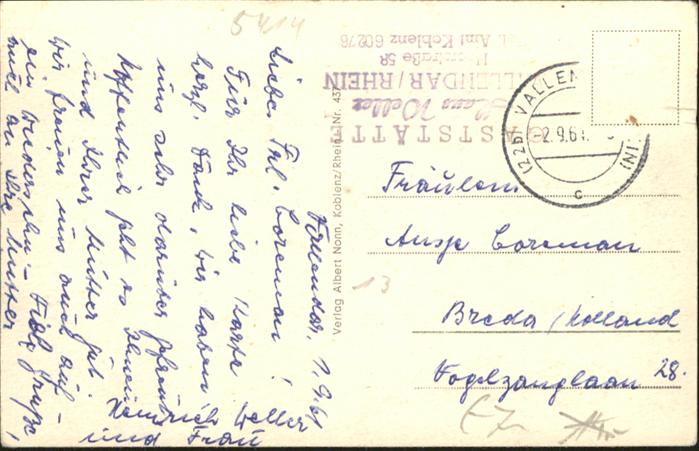 5414
Vallendar, 1.9.61
Liebe Frl. Coreman!
Für Ihr liebe Karte
herzl. Dank, wir haben
uns sehr darüber gefreut
hoffentlich geht es Ihnen
und Ihrer Mutter gut.
wir freuen uns auch auf
ein Wiedersehn. – Viele Grüße,
auch an Ihre Mutter
Heinrich Weller
und Frau
Verlag Albert Nonn, Koblenz/Rhein Nr. 43
GASTSTÄTTE
Hans Weller
VALLENDAR/RHEIN
straße 58
Amt Koblenz 60276
(22b) VALLEN
2.9.61
c
Fräulein
Ansje Coreman
Breda/Holland
Vogelzanglaan 28.
13